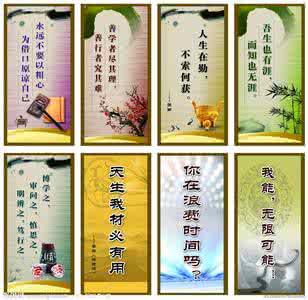 永远不要以粗心
为借口原谅自己
善学者尽其理，
善行者究其难
人生在勤，
不索何获
吾生也有涯，
而知也无涯。
博学之，
审问之，慎思之
明辨之，笃行之
天生我材必有用
你在浪费时间吗？
我能，无限可能！